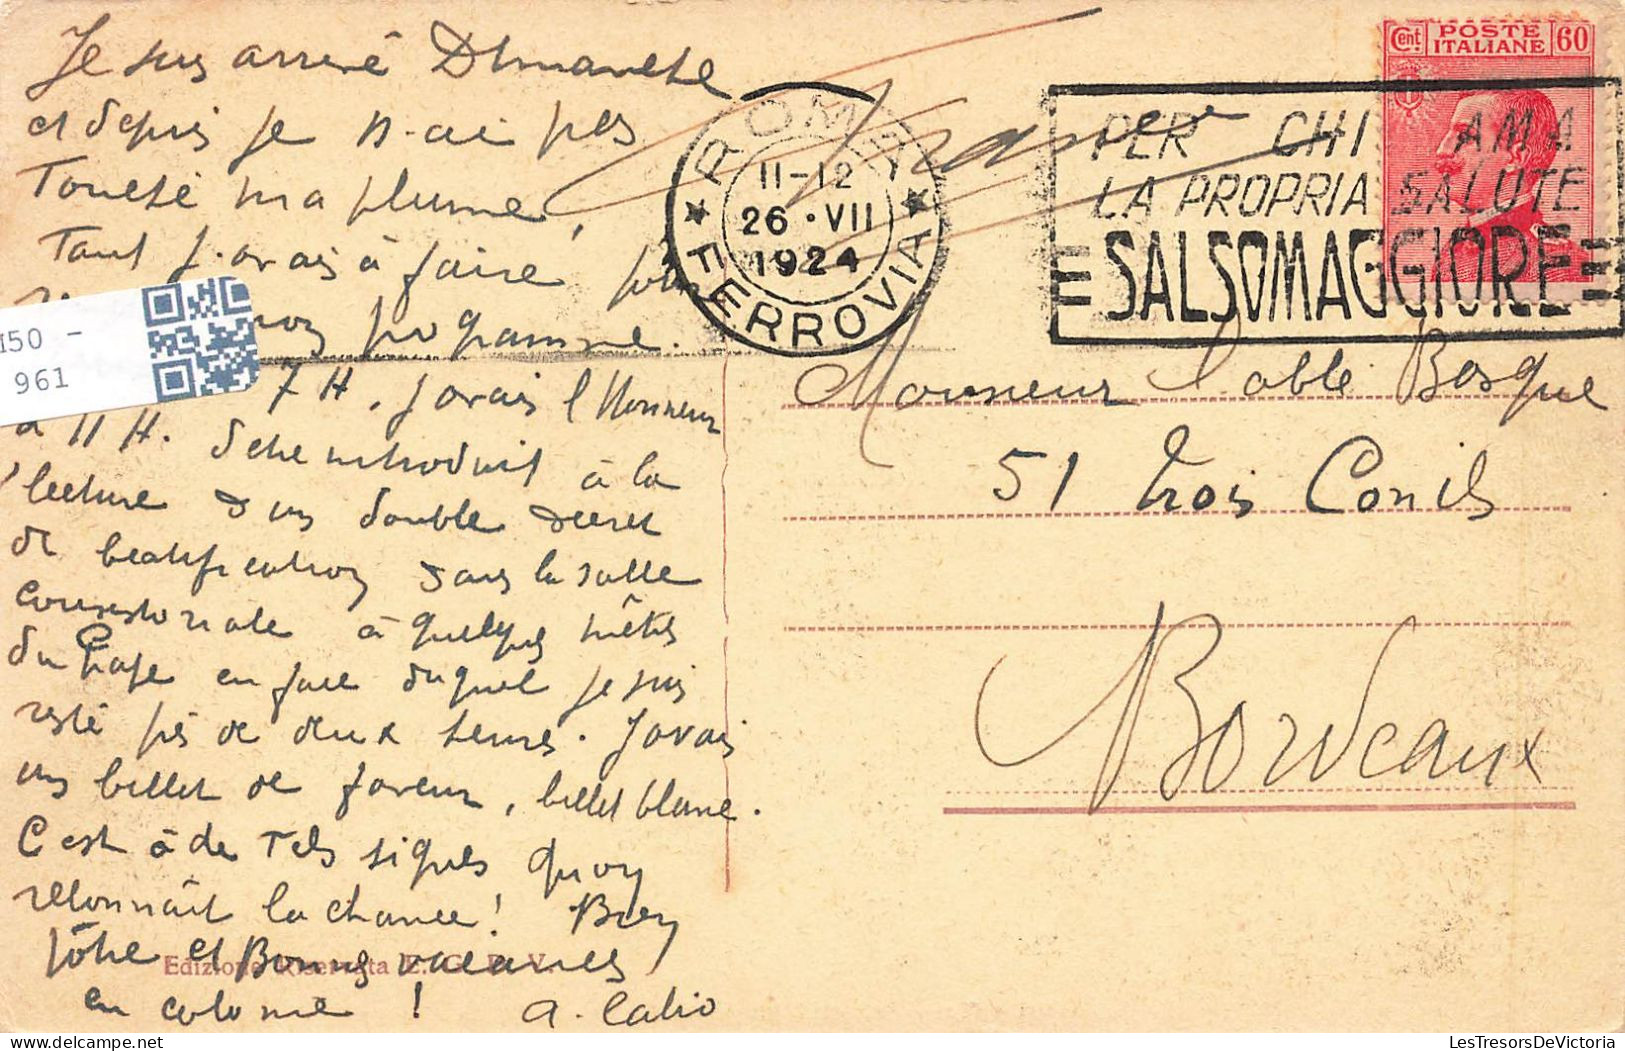 Je suis arrivé Dimanche
et depuis je n'ai pas
Touché ma plume,
Tant j'avais à faire pour
mon programme.
7 H. j'avais l'Honneur
à 11 H. d'être introduit à la
lecture d'un double décret
de béatification dans la salle
consistoriale à quelques mètres
du Pape en face duquel je suis
resté près de deux heures. J'avais
un billet de faveur, billet blanc.
C'est à de Tels signes qu'on
reconnaît la chance! Bien
vôtre et Bonnes vacances
en colonie! A. Calio
Edizione Riservata E. G. P. V.
I50 -
961
France
ROMA
11-12
26 · VII
1924
FERROVIA
Cent POSTE ITALIANE 60
PER CHI AMA
LA PROPRIA SALUTE
SALSOMAGGIORE
Monsieur l'abbé Bosque
51 Trois Conils
Bordeaux
LesTresorsDeVictoria